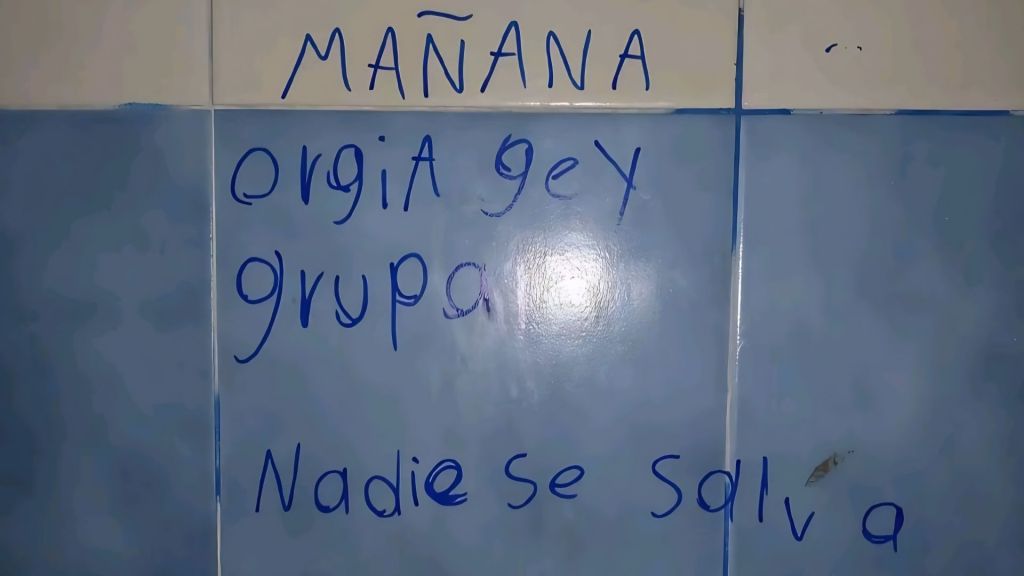 MAÑANA
orgiA gey
grupa
Nadie se salva